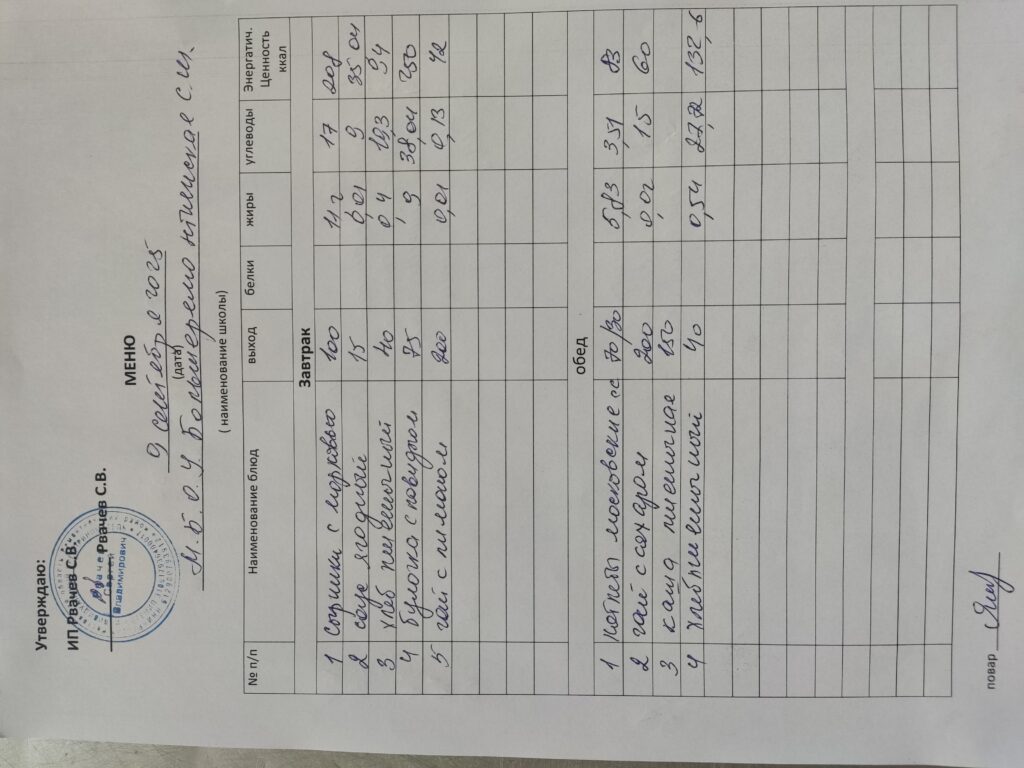 Утверждаю:
ИП Рвачев С.В.
Рвачев С.В.
Рвачев
Сергей
Владимирович
МЕНЮ
9 сентября 2025
(дата)
М.Б.О.У С.Ш.
( наименование школы)
№ п/п Наименование блюд выход белки жиры углеводы Энергатич. Ценность ккал
Завтрак
1 Сырники с морковью 100 11,2 17 208
2 соус ягодный 15 0,01 9 35,04
3 хлеб пшеничный 40 0,4 19,3 94
4 булочка с повидлом 75 9 38,04 250
5 чай с лимоном 200 0,01 0,13 42
обед
1 котлеты московские 70/30 5,83 3,51 83
2 чай с сахаром 200 0,02 15 60
3 каша пшеничная 150
4 хлеб пшеничный 40 0,54 27,72 132,6
повар